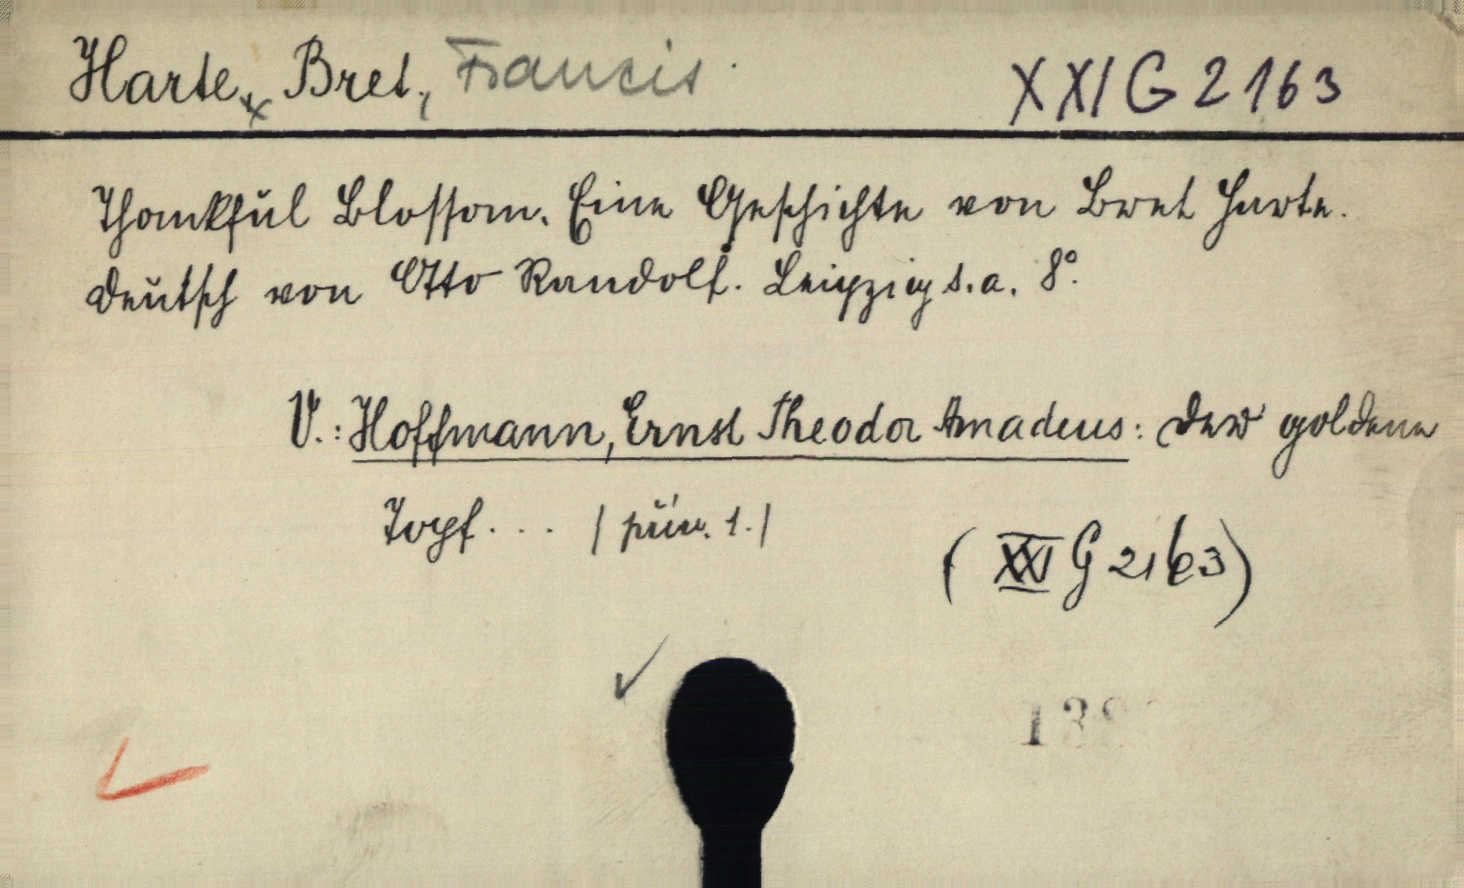 Harte, Bret, Francis. XXI G 2163
Thankful Blossom. Eine Geschichte von Bret Harte.
Deutsch von Otto Randolf. Leipzig s. a. 8°.
V.: Hoffmann, Ernst Theodor Amadeus: Der goldene
Topf ... / 1./
(XXI G 2163)